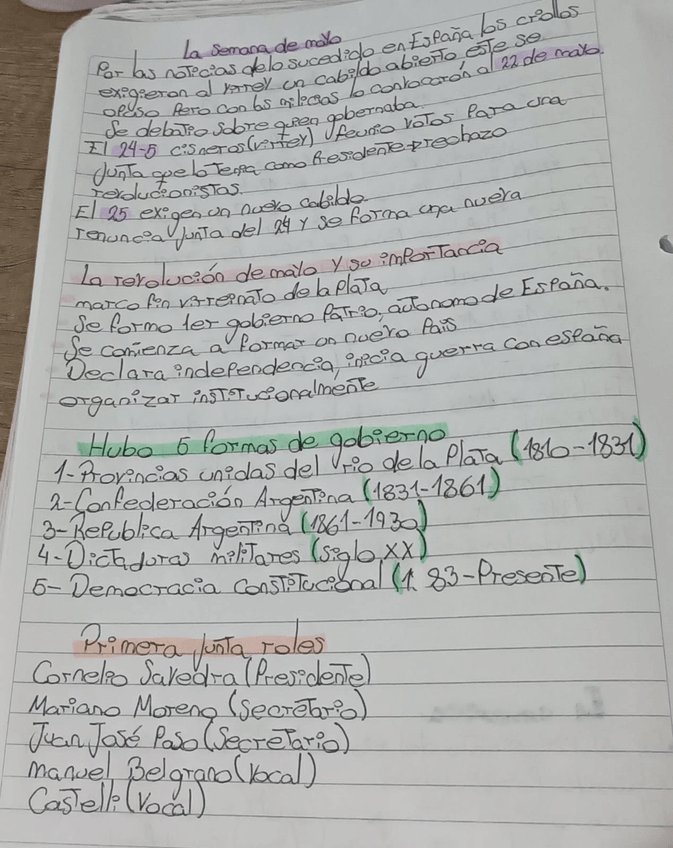 La semana de mayo
Por las noticias de lo sucedido en España los criollos
exigieron al virrey un cabildo abierto este se
opuso pero con las milicias lo convocarón al 22 de mayo.
Se debatio sobre quien gobernaba.
El 24-5 cisneros (virrey) reunio votos para una
Junta que lo tenia como Presidente rechazo
revolucionistas.
El 25 exigen un nuevo cabildo
renuncia junta del 24 y se forma una nueva
La revolución de mayo y su importancia
marco fin virreinato de la plata
Se formo 1er gobierno patrio, autonomo de España.
Se comienza a formar un nuevo Pais
Declara independencia, inicia guerra con españa
organizar institucionalmente
Hubo 5 formas de gobierno
1-Provincias unidas del rio de la Plata (1810-1831)
2-Confederación Argentina (1831-1861)
3-Republica Argentina (1861-1930)
4-Dictaduras militares (siglo XX)
5- Democracia constitucional (1 83-Presente)
Primera junta roles
Cornelio Savedra (Presidente)
Mariano Moreno (Secretario)
Juan José Paso (Secretario)
manuel Belgrano (vocal)
Castelli (vocal)